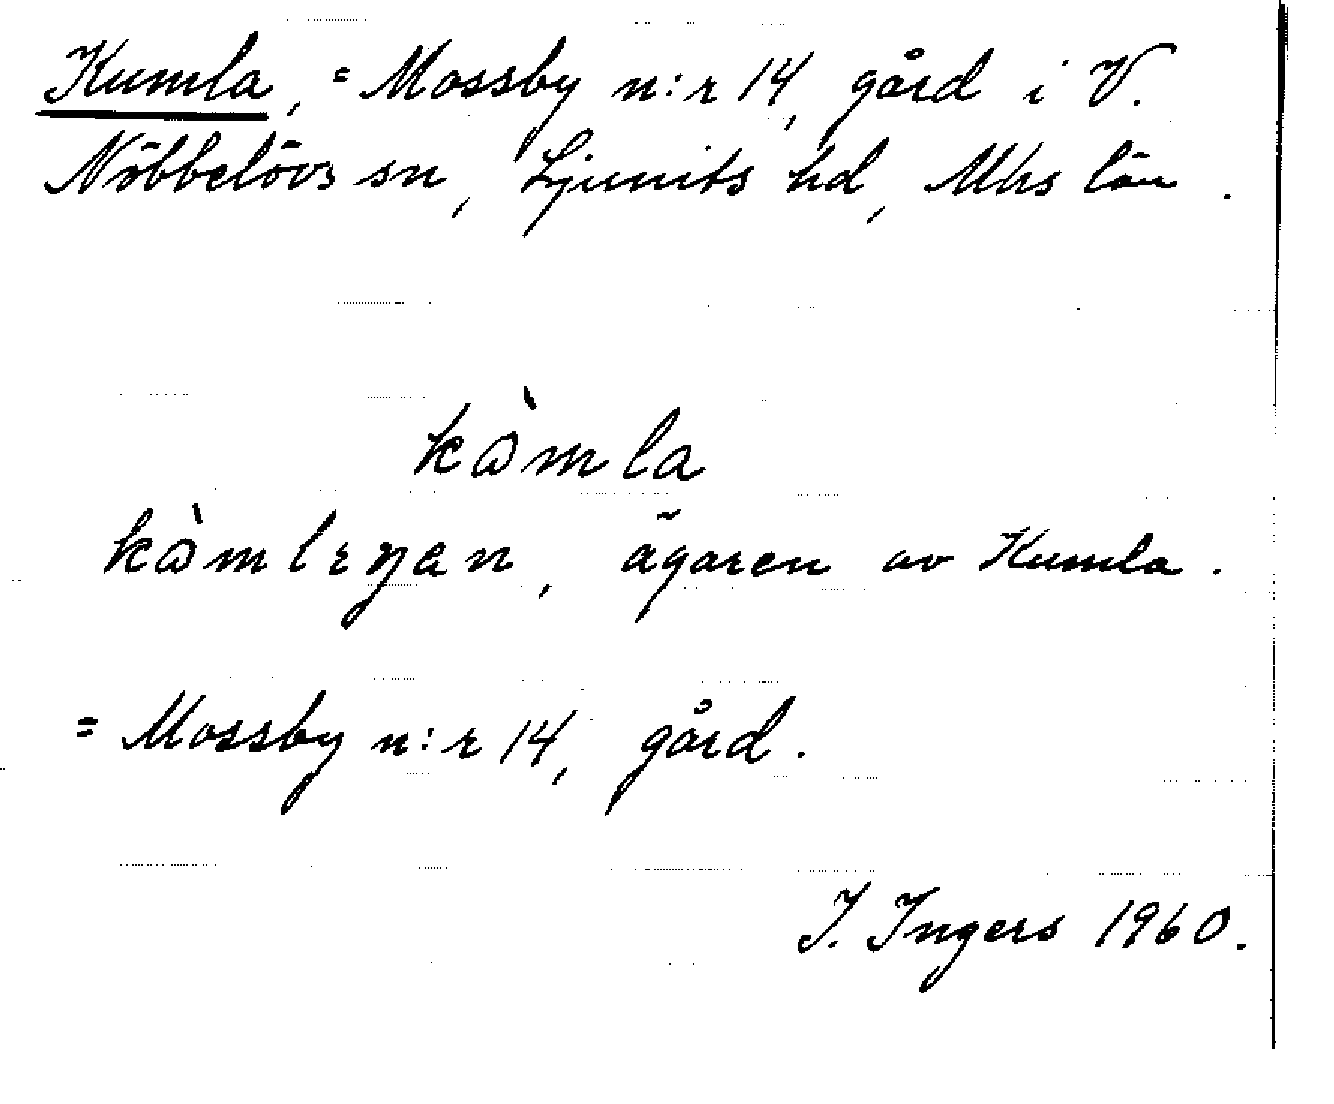 Kumla, = Mossby n:r 14, gård i V.
Nöbbelövs sn, Ljunits hd, Mhs län.
kɷ̀mla
kɷ̀mlɛŋan, ägaren av Kumla.
= Mossby n:r 14, gård.
I. Ingers 1960.